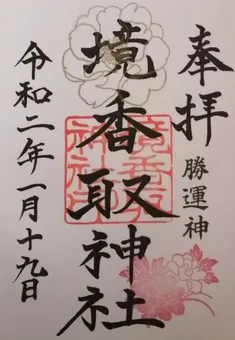 奉拝
勝運神
境香取神社
境香取神社印
令和二年一月十九日